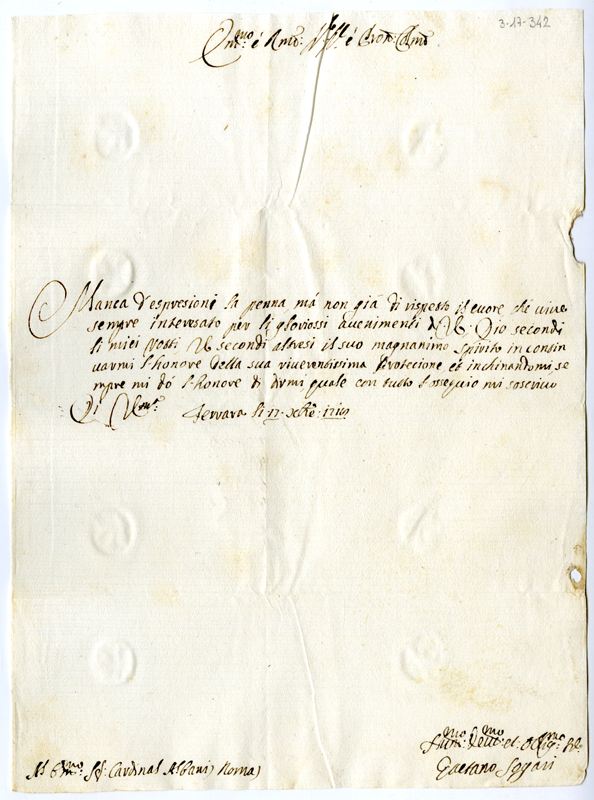 3-17-342
Em:mo é Rmo: Sig:r é Pron: Colmo
Manca d'espresioni la penna má non giá di rispetto il cuore che vive
sempre interesato per li gloriossi avenimenti di VE. Dio secondi
li miei Vosti VE secondi altresi il suo magnanimo spirito in contin
uarmi l'honore della sua riverentissima Protecione et inchinandomi se
mpre mi dó l'honore di dirmi quale con tutto l'ossequio mi soscrivo
Di V Em:a Ferrara li 17 xbre:
Hum:mo Deuo:mo et Oblig:mo
Al Em:mo Sig: Cardinal Albani Roma
Gaetano